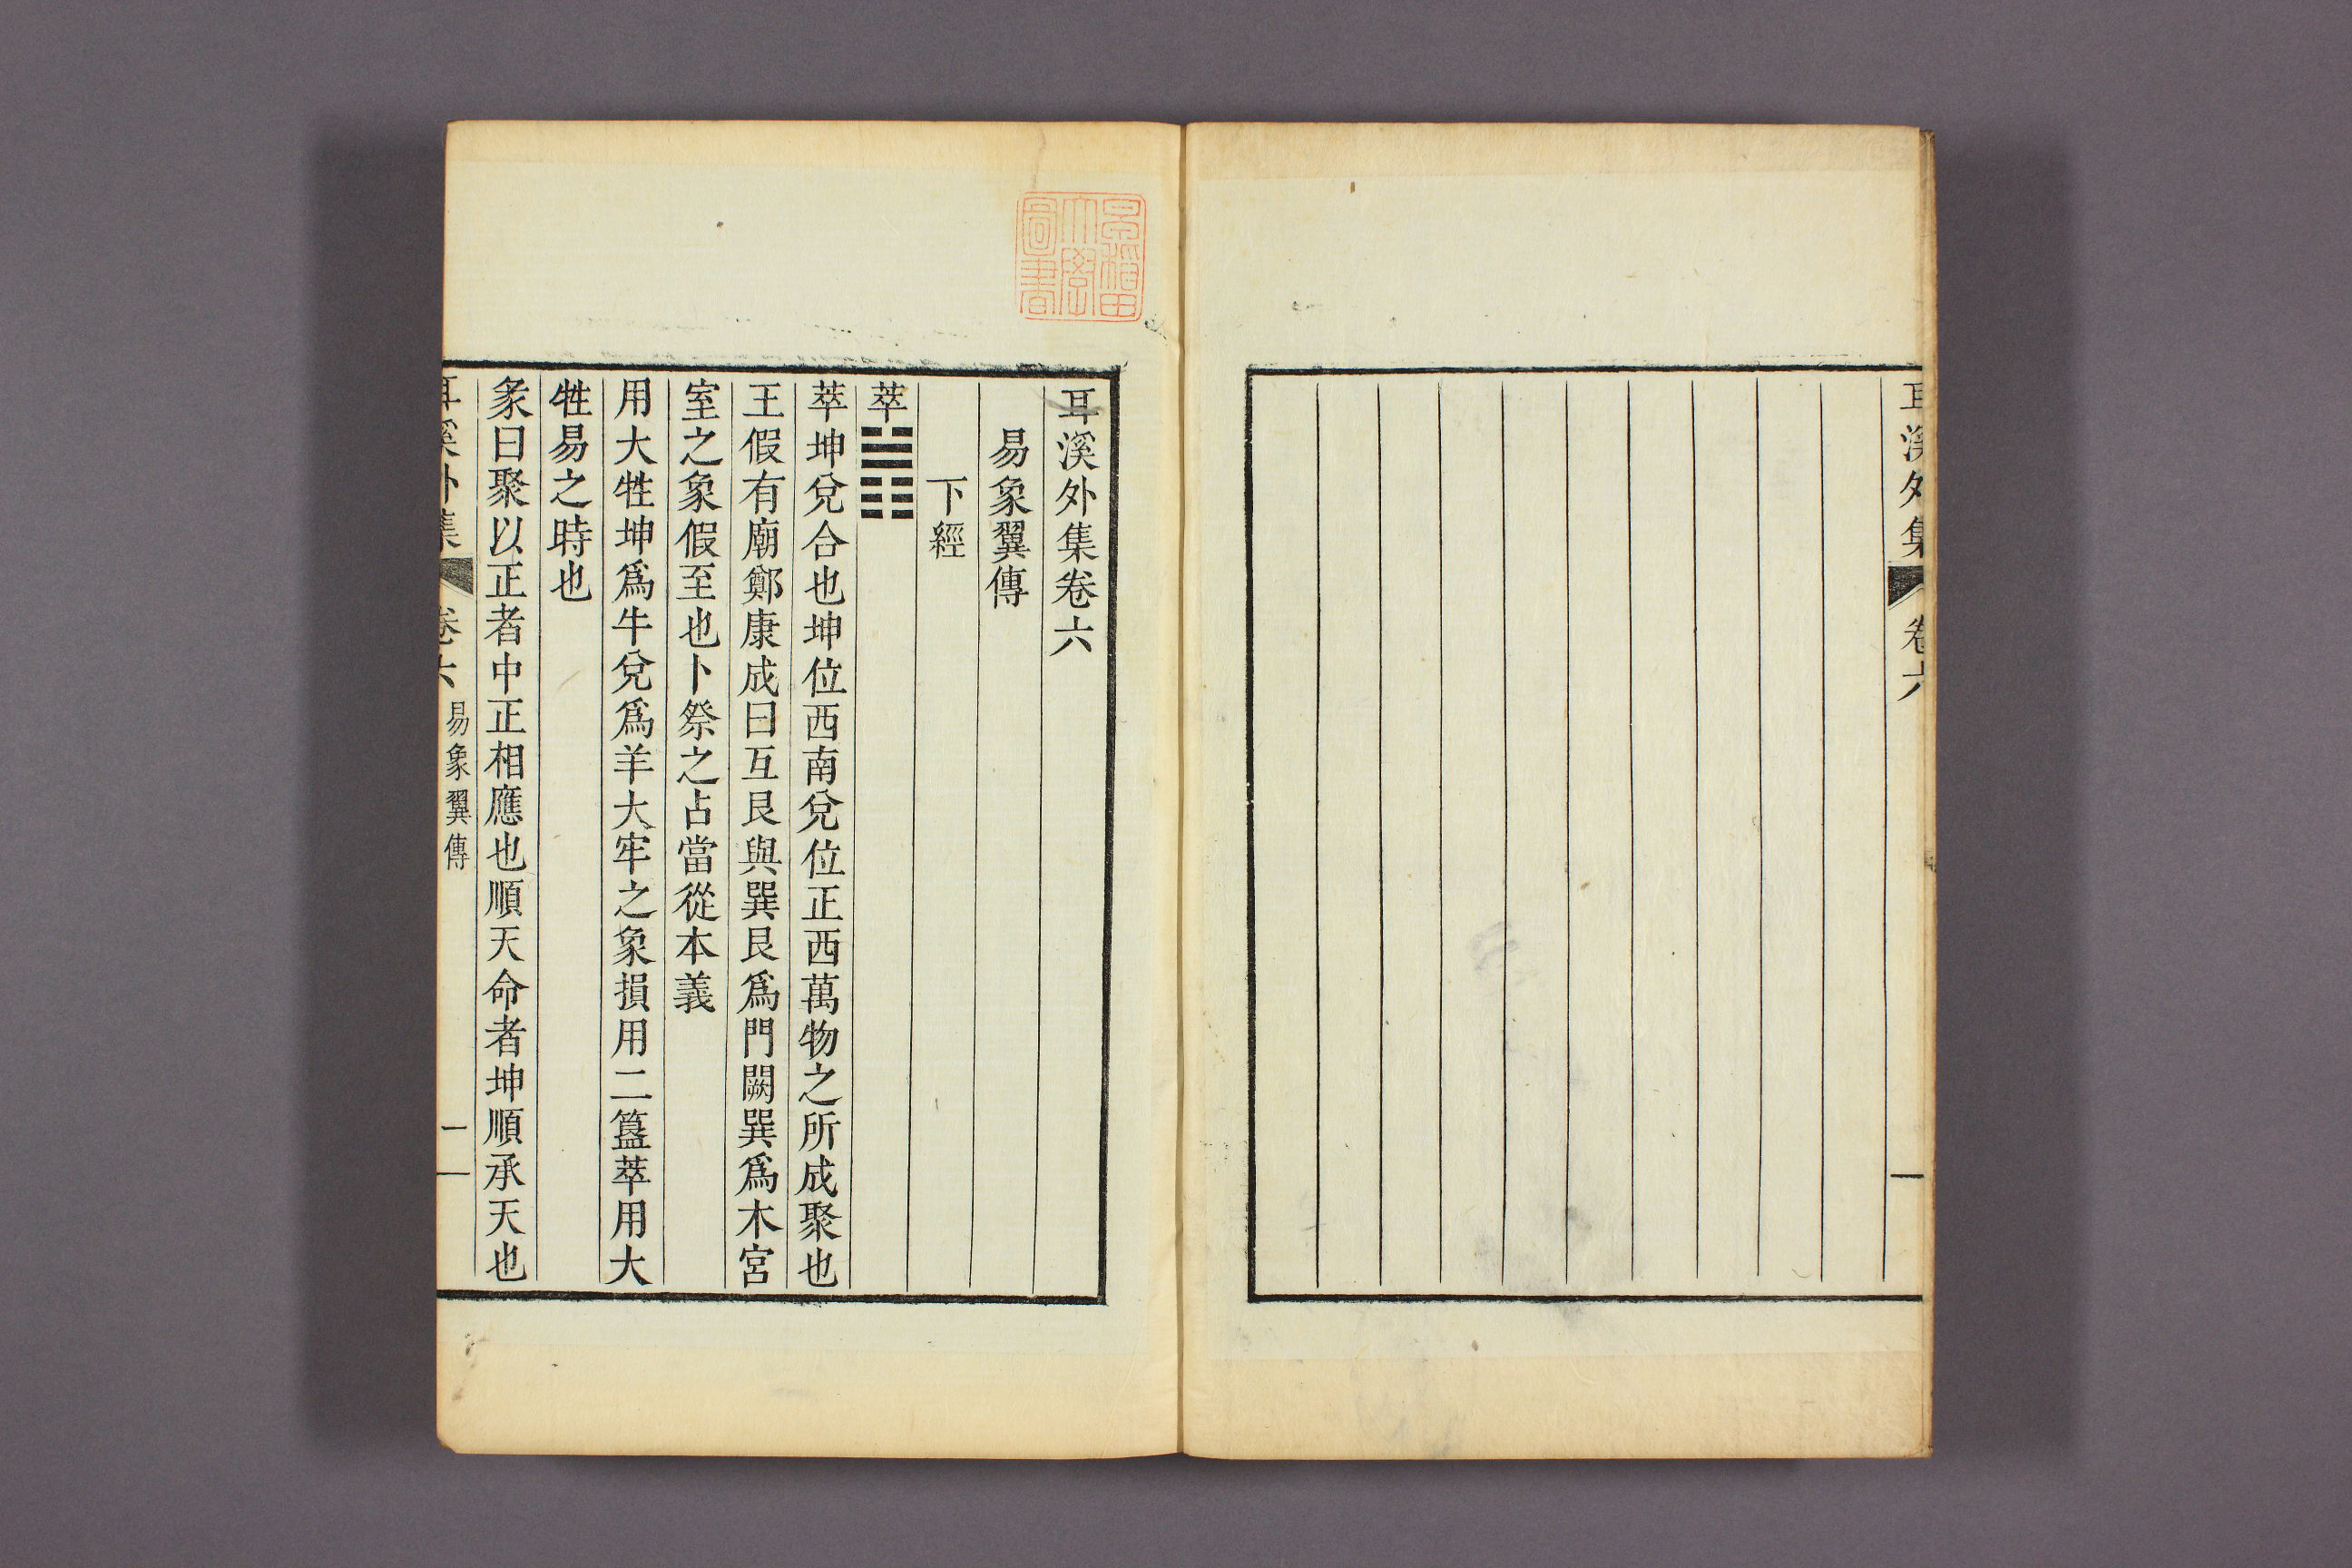 耳溪外集
卷六
一
早稲田
大學
圖書
耳溪外集卷六
易象翼傳
下經
萃
萃坤兌合也坤位西南兌位正西萬物之所成聚也
王假有廟鄭康成曰互艮與巽艮爲門闕巽爲木宮
室之象假至也卜祭之占當從本義
用大牲坤爲牛兌爲羊大牢之象損用二簋萃用大
牲易之時也
彖曰聚以正者中正相應也順天命者坤順承天也
耳溪外集
卷六
易象翼傳
一